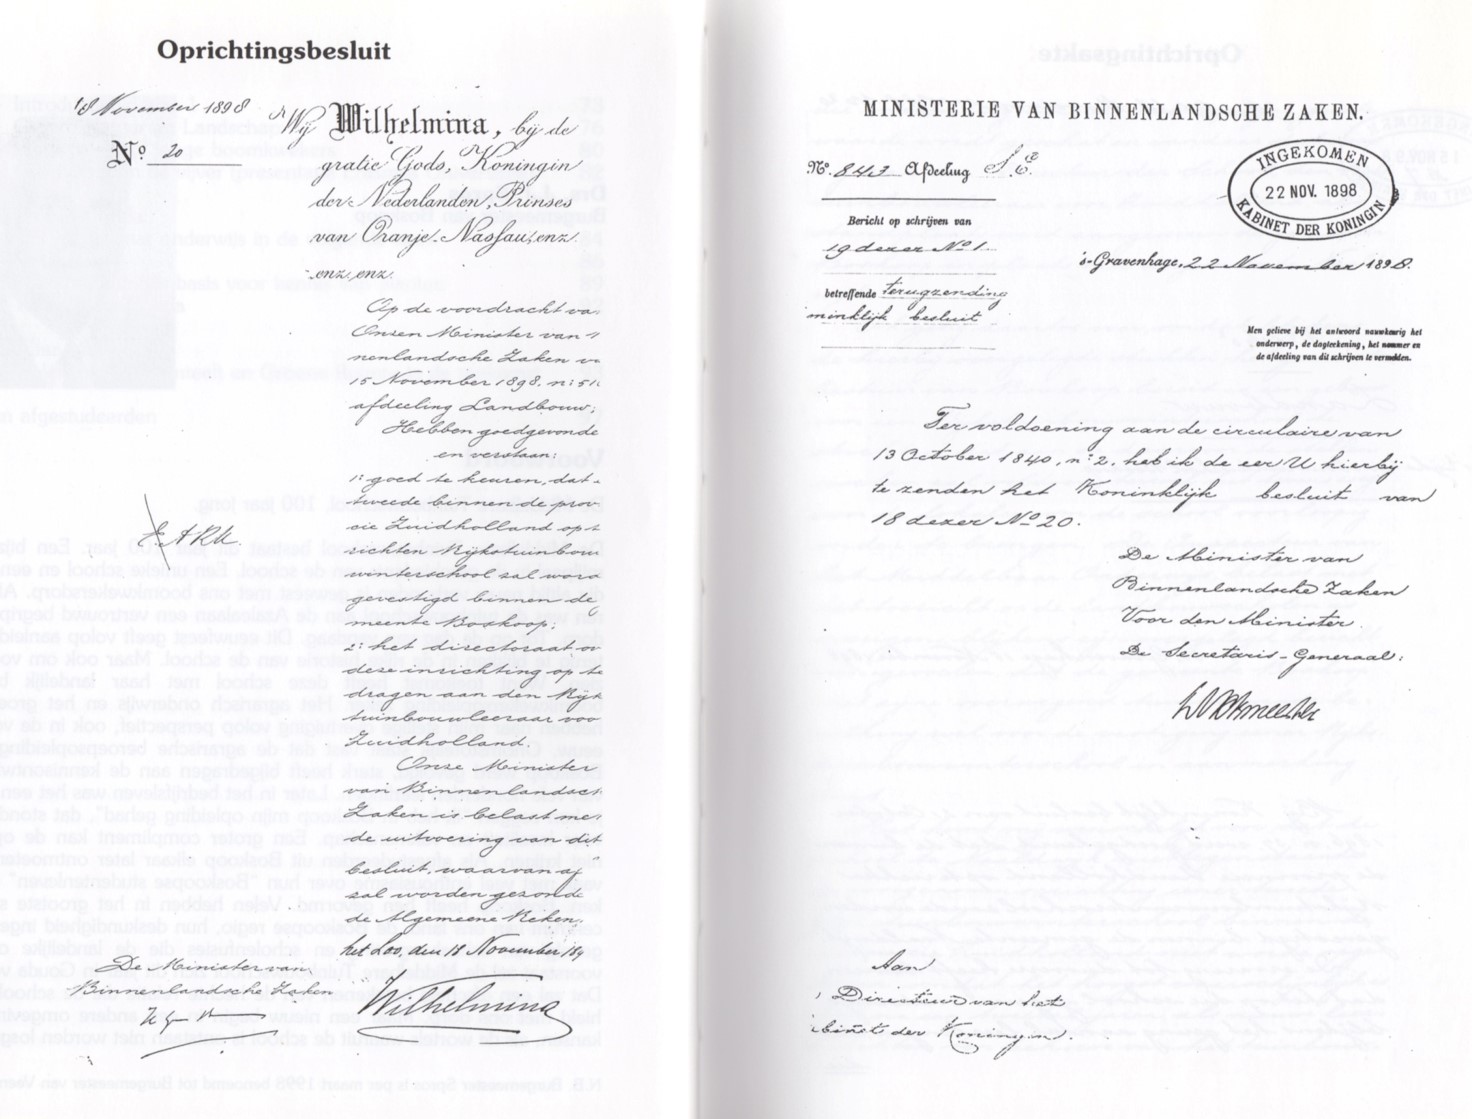 Oprichtingsbesluit
18 November 1898
No 20
Wij Wilhelmina, bij de
gratie Gods, Koningin
der Nederlanden, Prinses
van Oranje-Nassau, enz.
enz. enz.
Op de voordracht va
Onzen Minister van
nenlandsche Zaken v
15 November 1898. n: 51
afdeeling Landbouw;
Hebben goedgevonde
en verstaan:
1: goed te keuren, dat
tweede binnen de prov
cie Zuidholland op t
richten Rijkstuinbouw
winterschool zal word
gevestigd binnen de g
meente Boskoop;
2: het directoraat ov
deze inrichting op te
dragen aan den Rijks
tuinbouwleeraar voo
Zuidholland.
Onze Minister
van Binnenlandsch
Zaken is belast me
de uitvoering van dit
besluit, waarvan af
zal worden gezonde
de Algemeene Reken
het Loo, den 18 November 189
De Minister van
Binnenlandsche Zaken
Wilhelmina
MINISTERIE VAN BINNENLANDSCHE ZAKEN.
No. 8417 Afdeeling S.G.
INGEKOMEN
22 NOV. 1898
KABINET DER KONINGIN
Bericht op schrijven van
19 dezer No 1.
's-Gravenhage, 22 November 1898.
betreffende terugzending
minklijk besluit
Men gelieve bij het antwoord nauwkeurig het
onderwerp, de dagteekening, het nommer en
de afdeeling van dit schrijven te vermelden.
Ter voldoening aan de circulaire van
13 October 1840, n: 2, heb ik de eer U hierbij
te zenden het Koninklijk besluit van
18 dezer No 20.
De Minister van
Binnenlandsche Zaken
Voor den Minister
De Secretaris-Generaal:
Aan
Directeur van het
binet der Koningin.